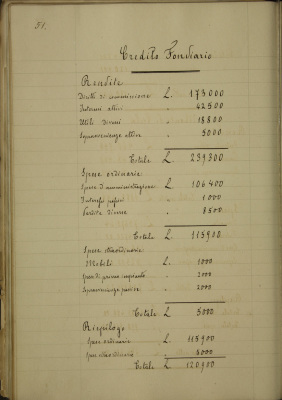 51.
Credito Fondiario
Rendite
Diritti di commissione L. 173000
Interessi attivi " 42500
Utili diversi " 18800
Sopravvenienze attive " 5000
Totale L. 239300
Spese ordinarie
Spese d'amministrazione L. 106400
Interessi passivi " 1000
Partite diverse " 8500
Totale L. 115900
Spese straordinarie
Mobili L. 1000
Spese di primo impianto " 2000
Sopravvenienze passive " 2000
Totale L. 5000
Riepilogo
Spese ordinarie L. 115900
Spese straordinarie " 5000
Totale L. 120900